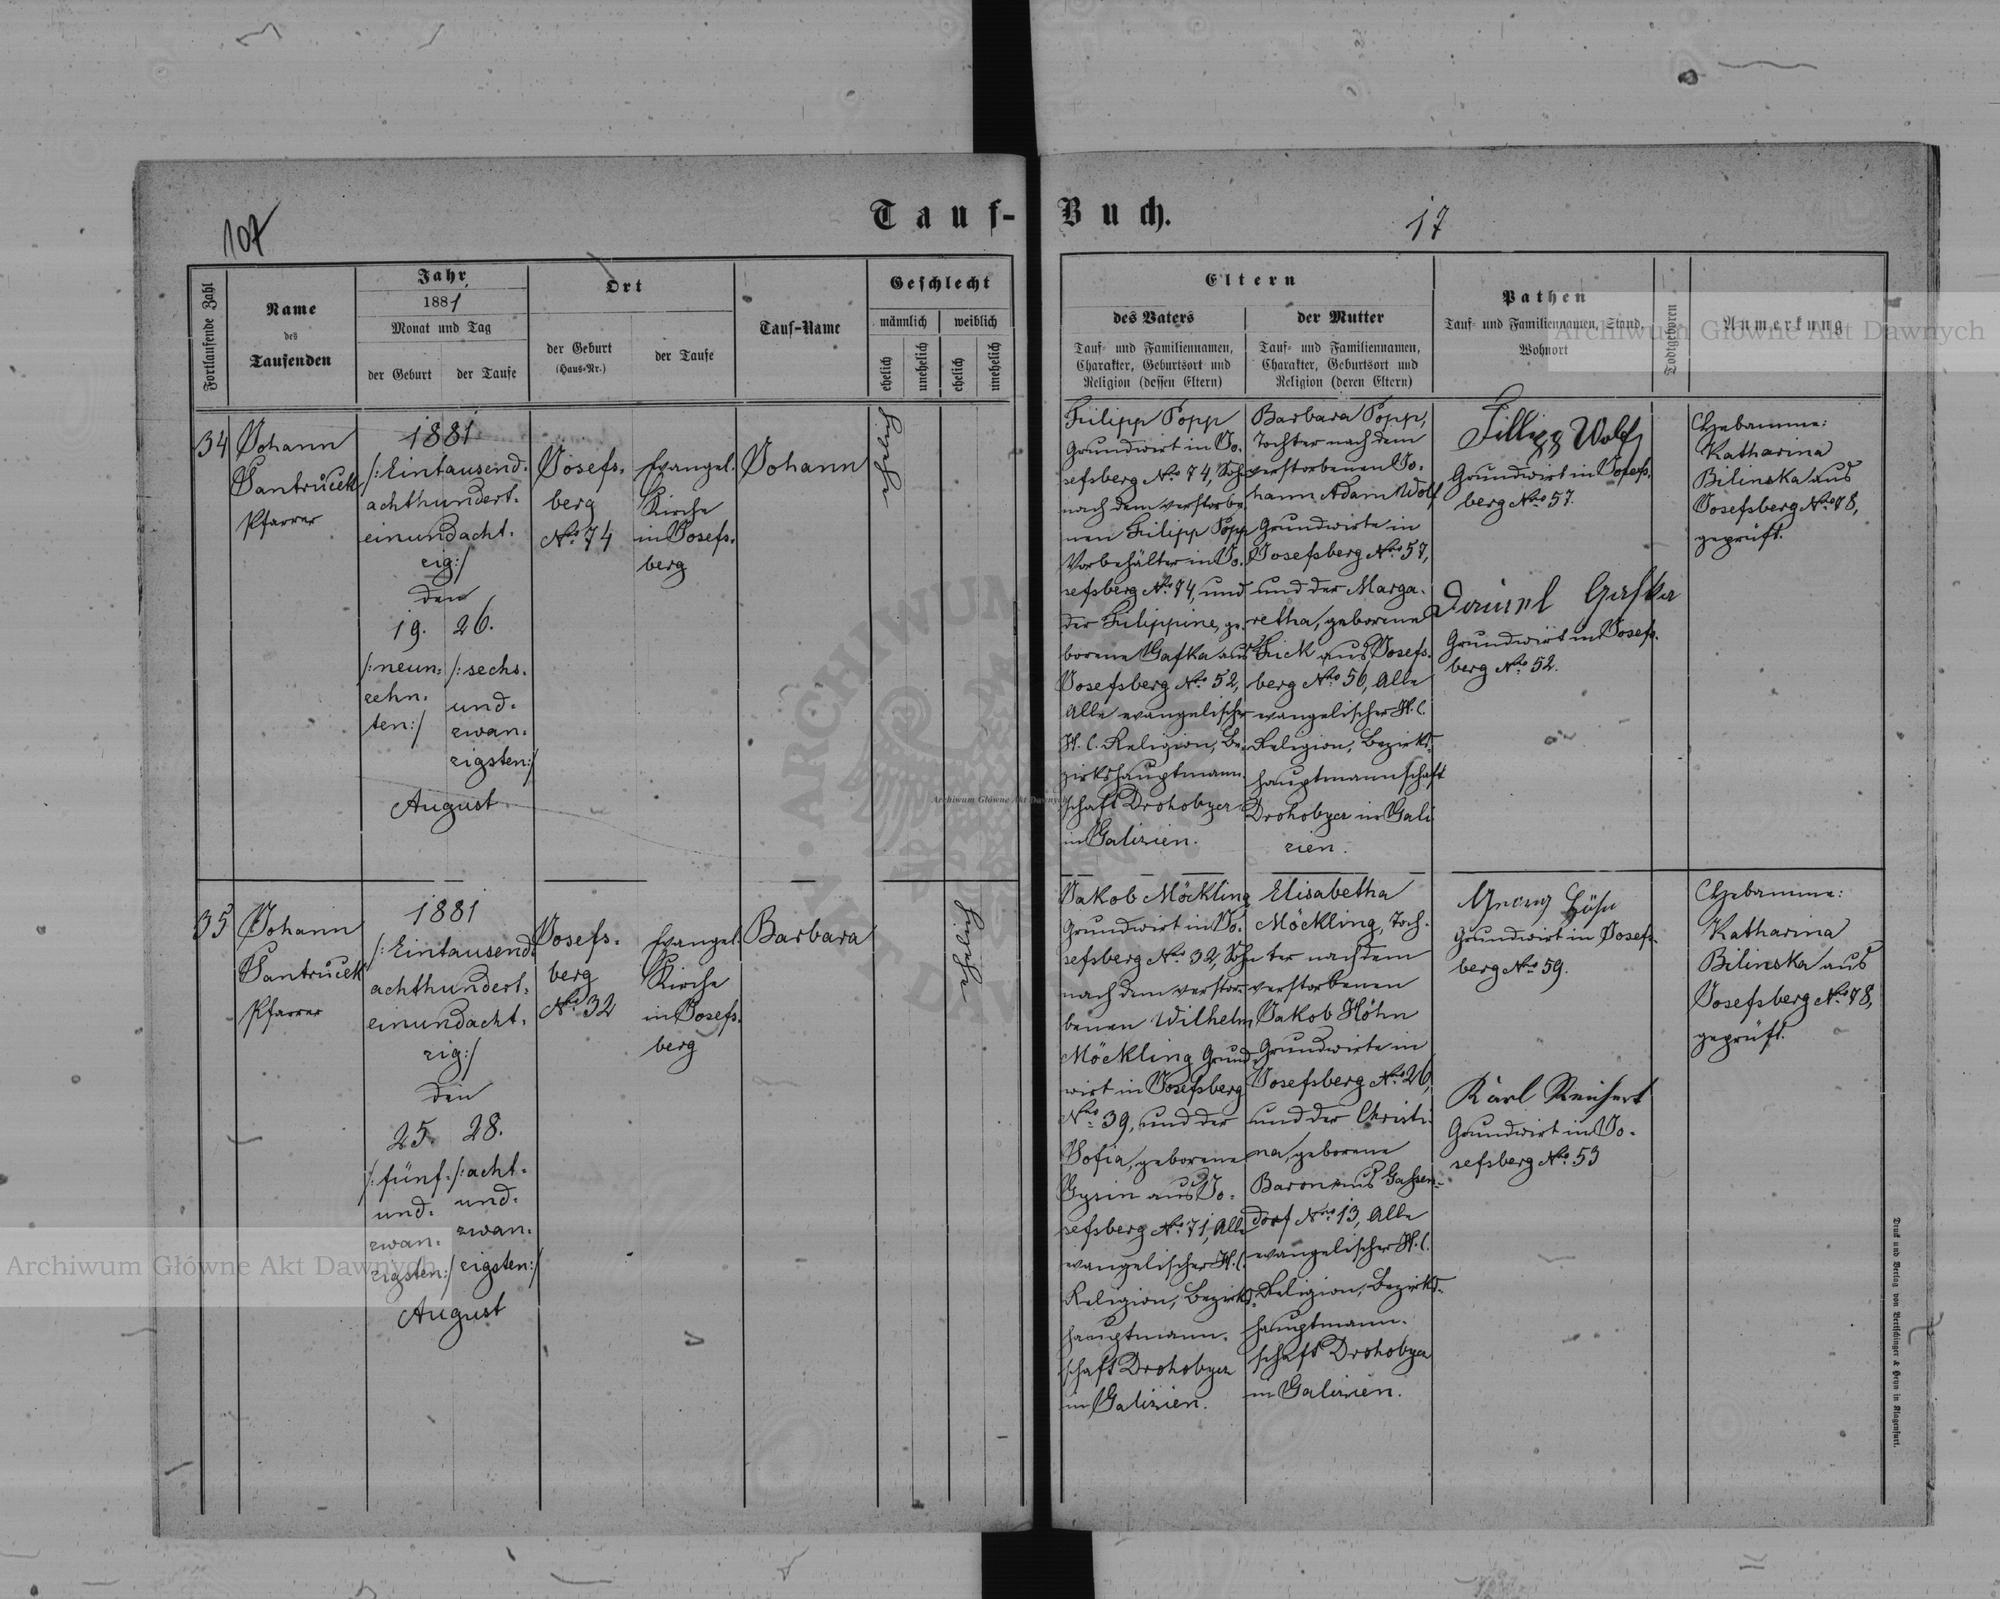 107
Tauf-Buch.
17
Fortlaufende Zahl
Name
des
Taufenden
Jahr
1881
Monat und Tag
der Geburt
der Taufe
Ort
der Geburt
(Haus-Nr.)
der Taufe
Tauf-Name
Geschlecht
männlich
weiblich
ehelich
unehelich
ehelich
unehelich
Eltern
des Vaters
Tauf- und Familiennamen,
Charakter, Geburtsort und
Religion (dessen Eltern)
der Mutter
Tauf- und Familiennamen,
Charakter, Geburtsort und
Religion (deren Eltern)
Pathen
Tauf- und Familiennamen, Stand,
Wohnort
Todtgeboren
Anmerkung
34
Johann
Santruček
Pfarrer
1881
/:Eintausend-
achthundert-
einundacht-
zig:/
den
19.
/:neun-
zehn-
ten:/
26.
/:sechs-
und-
zwan-
zigsten:/
August
Josefs-
berg
Nro 74
Evangel.
Kirche
in Josefs-
berg
Johann
Filipp Popp
Grundwirt in Jo-
sefsberg Nro 74, Sohn
nach dem verstorbe-
nen Filipp Popp
Vorbehälter in Jo-
sefsberg Nro 74, und
der Filippine, ge-
borene Gafka aus
Josefsberg Nro 52,
Alle evangelischer
H. C. Religion, Be-
zirkshauptmann-
schaft Drohobycz
in Galizien.
Barbara Popp,
Tochter nach dem
verstorbenen Jo-
hann Adam Wolf
Grundwirte in
Josefsberg Nro 57,
und der Marga-
retha, geborene
Frick aus Josefs-
berg Nro 56, Alle
evangelischer H. C.
Religion, Bezirks-
hauptmannschaft
Drohobycz in Gali
zien.
Fillipp Wolf
Grundwirt in Josefs-
berg Nro 57.
Daniel Gafka
Grundwirt in Josefs-
berg Nro 52.
Hebamme:
Katharina
Bilinska aus
Josefsberg Nro 78,
geprüft.
35
Johann
Santruček
Pfarrer
1881
/:Eintausend-
achthundert-
einundacht-
zig:/
den
25.
/:fünf-
und-
zwan-
zigsten:/
28.
/:acht-
und-
zwan-
zigsten:/
August
Josefs-
berg
Nro 32
Evangel.
Kirche
in Josefs-
berg
Barbara
Jakob Möckling
Grundwirt in Jo-
sefsberg Nro 32, Sohn
nach dem verstor-
benen Wilhelm
Möckling Grund-
wirt in Josefsberg
Nro 39, und der
Sofia, geborene
Gysin aus Jo-
sefsberg Nro 71, Alle
evangelischer H. C.
Religion, Bezirks-
hauptmann-
schaft Drohobycz
in Galizien.
Elisabetha
Möckling, Toch-
ter nach dem
verstorbenen
Jakob Höhn
Grundwirte in
Josefsberg Nro 26,
und der Christi-
na, geborene
Baron aus Gassen-
dorf Nro 13, Alle
evangelischer H. C.
Religion, Bezirks-
hauptmann-
schaft Drohobycz
in Galizien.
Georg Höhn
Grundwirt in Josefs-
berg Nro 59.
Karl Reichert
Grundwirt in Jo-
sefsberg Nro 53
Hebamme:
Katharina
Bilinska aus
Josefsberg Nro 78,
geprüft.
Druck und Verlag von Bertschinger & Heyn in Klagenfurt.
Archiwum Główne Akt Dawnych
Archiwum Główne Akt Dawnych
Archiwum Główne Akt Dawnych